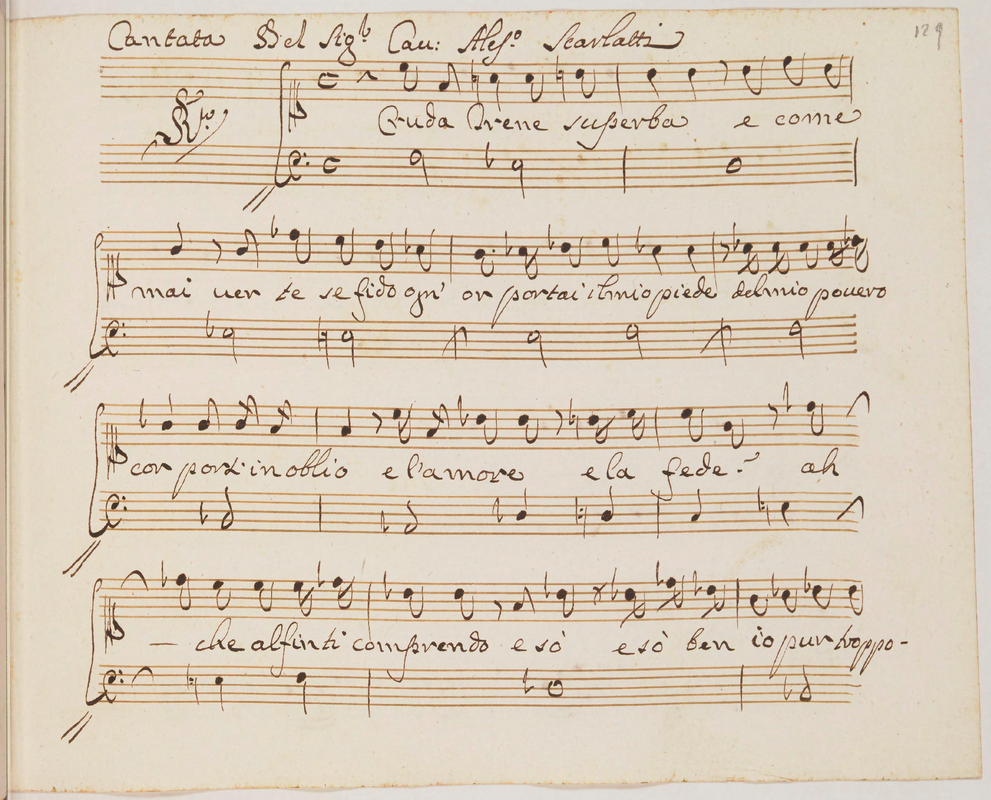 Cantata Del Sigr Cau: Alesso Scarlatti
129
Ro
Cruda Irene superba e come
mai uer te se fido ogn' or portai il mio piede del mio pouero
cor port: in oblio e l'amore e la fede? ah
- che al fin ti comprendo e sò e sò ben io pur troppo-